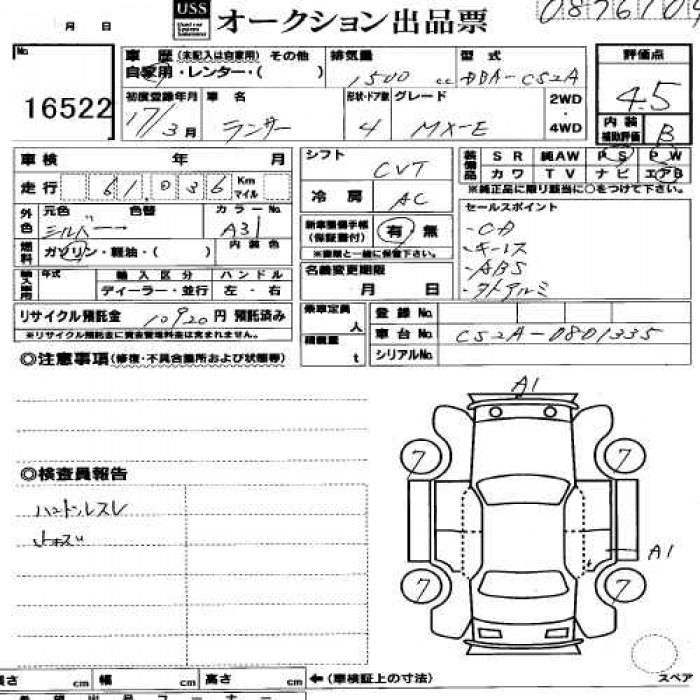 月 日 USS オークション出品票 0876104
No. 16522
車歴 (未記入は自家用) その他 排気量 型式 評価点
自家用・レンター・( ) 1500 cc DBA-CS2A 4.5
初度登録年月 車名 形状・ドア数 グレード 2WD ・ 4WD 内装補助評価 B
17/3月 ランサー 4 MX-E
車検 年 月 シフト CVT 装備品 SR 純AW PS PW
走行 61,036 Km マイル 冷房 AC カワ TV ナビ エアB
※純正品に限り該当に○をつけて下さい。
外色 元色 色替 カラーNo. 新車整備手帳 (保証書付) 有・無 セールスポイント
シルバー → A31 ※書類と一緒に保管下さい。 ・CD
燃料 ガソリン・軽油・( ) 内装色 ・キーレス
輸入車用 年式 輸入区分 ハンドル 名義変更期限 ・ABS
ディーラー・並行 左・右 月 日 ・外アルミ
リサイクル預託金 10920円 預託済み 乗車定員 人 登録No.
※リサイクル預託金に資金管理料金は含まれません。 積載量 t 車台No. CS2A-0801335
◎注意事項(修復・不具合箇所および状態等) シリアルNo.
A1
7 7
◎検査員報告
ハンドルスレ
小キズ
A1
7 7
長さ cm 幅 cm 高さ cm ←(車検証上の寸法) スペア